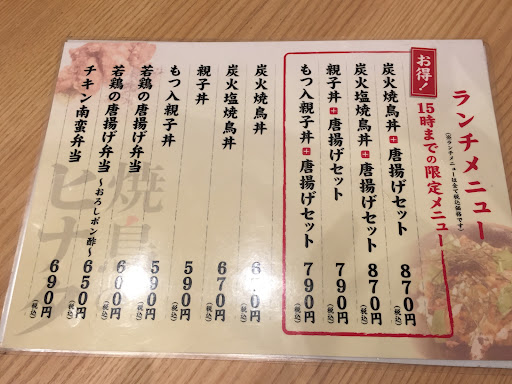 ランチメニュー
(※ランチメニューは全て税込価格です)
お得!
15時までの限定メニュー
炭火焼鳥丼+唐揚げセット 870円(税込)
炭火塩焼鳥丼+唐揚げセット 870円(税込)
親子丼+唐揚げセット 790円(税込)
もつ入親子丼+唐揚げセット 790円(税込)
炭火焼鳥丼 円(税込)
炭火塩焼鳥丼 670円(税込)
親子丼 590円(税込)
もつ入親子丼 590円(税込)
若鶏の唐揚げ弁当 600円(税込)
若鶏の唐揚げ弁当 〜おろしポン酢〜 650円(税込)
チキン南蛮弁当 690円(税込)
焼鳥
ヒナ